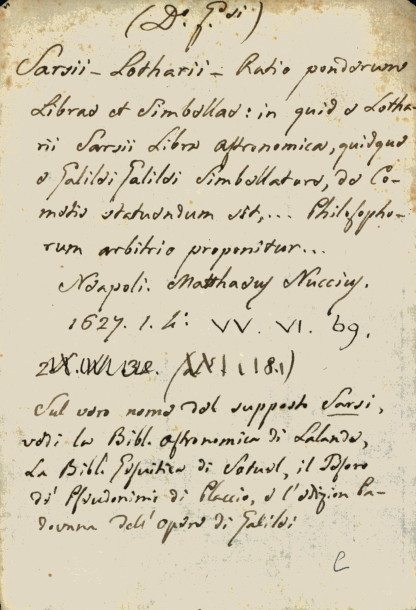 Sarsii - Lotharii - Ratio ponderum
Librae et Simbellae: in quid e Lotha-
rii Sarsii Libra astronomica, quidque
e Galilei Galilei Simbellatore, de Co-
metis statuendum sit,... Philosopho-
rum arbitrio proponitur...
Neapoli. Matthaeus Nuccius.
1627. 1. 4:° VV. VI. 69.
(XXI
Sul vero nome del supposto Sarsi,
vedi la Bibl. astronomica di Lalande,
La Bibl. Gesuitica di Sotuel, il Tesoro
de' Pseudonimi di Placcio, e l'edizion Pa-
dovana dell' Opere di Galilei